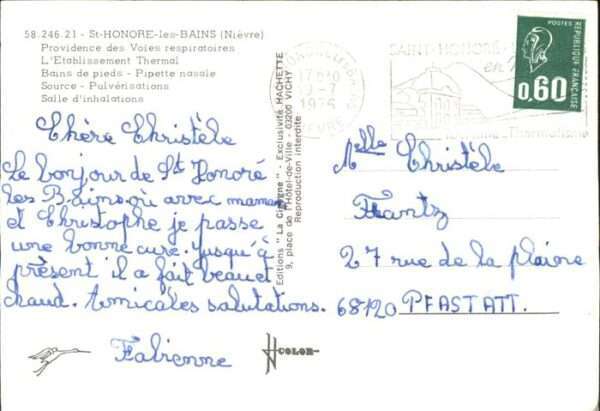 58.246.21 - St-HONORE-les-BAINS (Nièvre)
Providence des Voies respiratoires
L'Etablissement Thermal
Bains de pieds - Pipette nasale
Source - Pulvérisations
Salle d'inhalations
Chère Christèle
Le bonjour de St Honoré
les Bains où avec maman
et Christophe je passe
une bonne cure. Jusqu'à
présent il a fait beau et
chaud. Amicales salutations.
Fabienne
COLOR
Editions "La Cigogne" - Exclusivité HACHETTE
9, place de l'Hôtel-de-Ville - 03200 VICHY
Reproduction interdite
17H30
1976
SAINT-HONORÉ
en
Thermalisme
POSTES
REPUBLIQUE FRANÇAISE
0,60
Melle Christèle
Frantz
27 rue de la plaine
68120 PFASTATT.